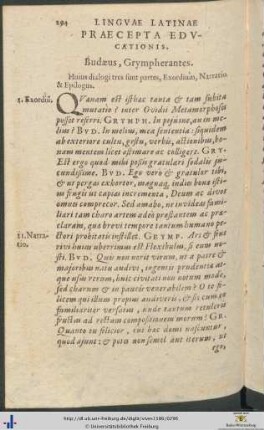 294 LINGVAE LATINAE
PRAECEPTA EDV-
CATIONIS.
Budæus, Grympherantes.
Huius dialogi tres sunt partes, Exordium, Narratio
& Epilogus.
1. Exordiū. QVanam est isthæc tanta & tam subita
mutatio? inter Ovidii Metamorphoses
possit referri. GRYMPH. In pejúsne, an in me-
lius? BVD. In melius, mea sententia: siquidem
ab exteriore cultu, gestu, verbis, actionibus, bo-
nam mentem licet æstimare ac colligere. GRY.
Est ergo quod mihi possis gratulari sodalis ju-
cundissime. BVD. Ego verò & gratulor tibi,
& ut pergas exhortor, magnaq́, indies bonæ
frugis ut capias incrementa, Deum ac divos
omnes comprecor. Sed amabo, ne invideas fami-
liari tam charo artem adeò præstantem ac præ-
claram, quæ brevi tempore tantum humano pe-
11. Narra- ctori probitatis instillet. GRYMP. Ars & fons
tio. rivi huius uberrimus est Flexibulus, si eum no-
sti. BVD. Quis non norit virum, ut a patre &
majoribus natu audivi, ingenii prudentia at-
que usu rerum, huic civitati non notum modo,
sed charum & in paucis venerabilem? O te fe-
licem qui illum propius audiveris, & sis cum eo
familiariter versatus, unde tantum retuleris
fructum ad rectam compositionem morum! GR.
Quanto tu felicior, cui hæc domi nascuntur,
quod ajunt: & pote non semel aut iterum, ut
ego,
http://dl.ub.uni-freiburg.de/diglit/vives1586/0298
© Universitätsbibliothek Freiburg